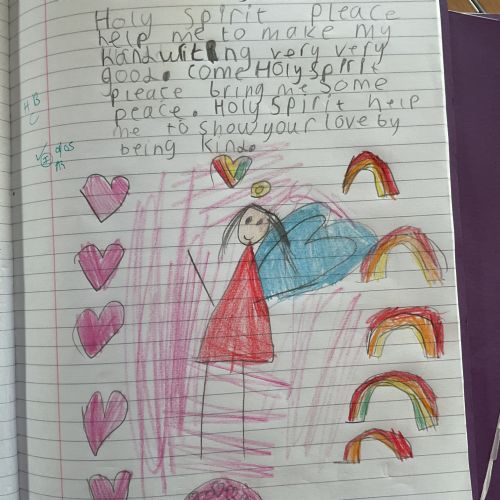 Holy Spirit Pleace
help me to make my
handwriting very very
good. Come Holy Spirit
pleace bring me some
peace. Holy Spirit help
me to show your love by
being kind.
HB